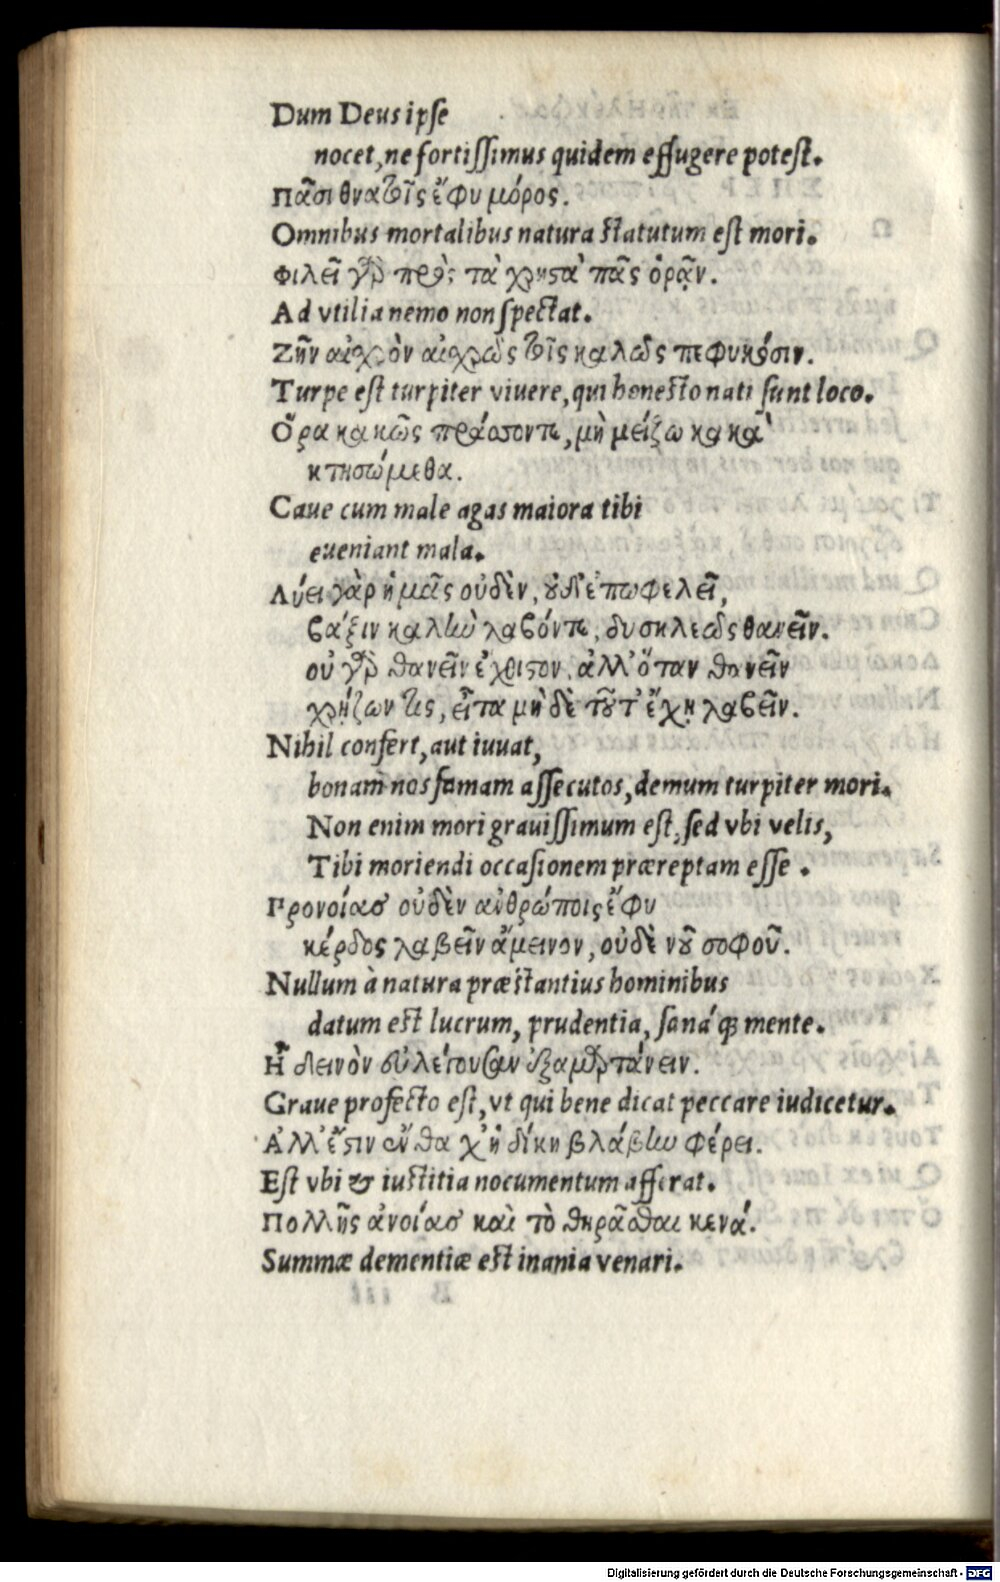 Dum Deus ipse
nocet, ne fortissimus quidem effugere potest.
Πᾶσι θνατοῖς ἔφυ μόρος.
Omnibus mortalibus natura statutum est mori.
Φιλεῖ γὰρ πρὸς τὰ χρηστὰ πᾶς ὁρᾷν.
Ad vtilia nemo non spectat.
Ζῆν αἰσχρὸν αἰσχρῶς τοῖς καλῶς πεφυκόσιν.
Turpe est turpiter viuere, qui honesto nati sunt loco.
Ὅρα κακῶς πράσσοντε, μὴ μείζω κακὰ
κτησώμεθα.
Caue cum male agas maiora tibi
eueniant mala.
Λύει γὰρ ἡμᾶς οὐδὲν, οὐδ' ἐπωφελεῖ,
βάξιν καλὴν λαβόντε, δυσκλεῶς θανεῖν.
οὐ γὰρ θανεῖν ἔχθιστον, ἀλλ' ὅταν θανεῖν
χρῄζων τις, εἶτα μὴ δὲ τοῦτ' ἔχῃ λαβεῖν.
Nihil confert, aut iuuat,
bonam nos famam assecutos, demum turpiter mori.
Non enim mori grauissimum est, sed vbi velis,
Tibi moriendi occasionem præreptam esse.
Προνοίας οὐδὲν ἀνθρώποις ἔφυ
κέρδος λαβεῖν ἄμεινον, οὐδὲ νοῦ σοφοῦ.
Nullum à natura præstantius hominibus
datum est lucrum, prudentia, sanáq; mente.
Ἦ δεινὸν εὖ λέγουσαν ἐξαμαρτάνειν.
Graue profecto est, vt qui bene dicat peccare iudicetur.
Ἀλλ' ἔστιν ἔνθα χ' ἡ δίκη βλάβην φέρει.
Est vbi & iustitia nocumentum afferat.
Πολλῆς ἀνοίας καὶ τὸ θηρᾶσθαι κενά.
Summæ dementiæ est inania venari.
Digitalisierung gefördert durch die Deutsche Forschungsgemeinschaft - DFG